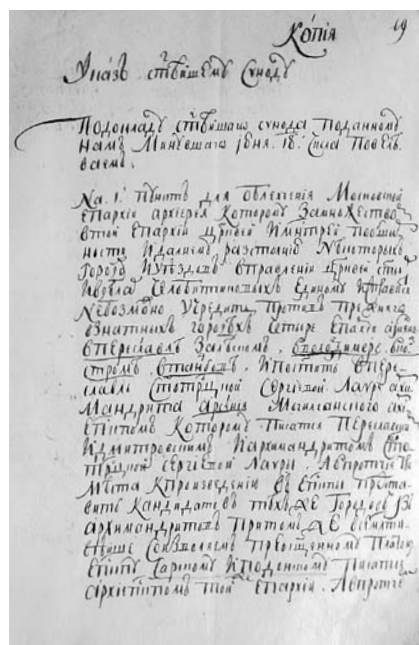 Копія 69
Указъ стѣйшему Сѵноду
Подокладу стѣйшаго сунода поданному
намъ минувшаго іюня 18: числа повелѣ
ваемъ.
На. 1: пунктъ для облехченія Московской
епархіи архіерея которому за множество
втой епархіи црквей
ности идалнем разстояніи некоторыхъ
городовъ иуездовъ вправленіи црквей
дѣлъ челобитчиковыхъ единому
невозможно учредить противъ прежняго
взнатныхъ городѣхъ четыре епархіи
впереславлѣ залѣском, вволодимере,
стромѣ, втанбовѣ, ипостить впере
славль стотроицкой сергіевой лавры архи
мандрита арсенія могилянского
епископом котором писатся переславским
идмитровскимъ иархимандритомъ сто
троицкой сергіевой лавры. Авпротчіе
мѣста кпроизведенію въ епископы предста
вить кандидатовъ тѣхъ же городовъ
архимандритовъ притомъ же всемилости
вѣйше соизволяемъ преосвященному Платону
епископу Сарскому иподонскому писатись
архіепископомъ той епархіи. Авпротчие